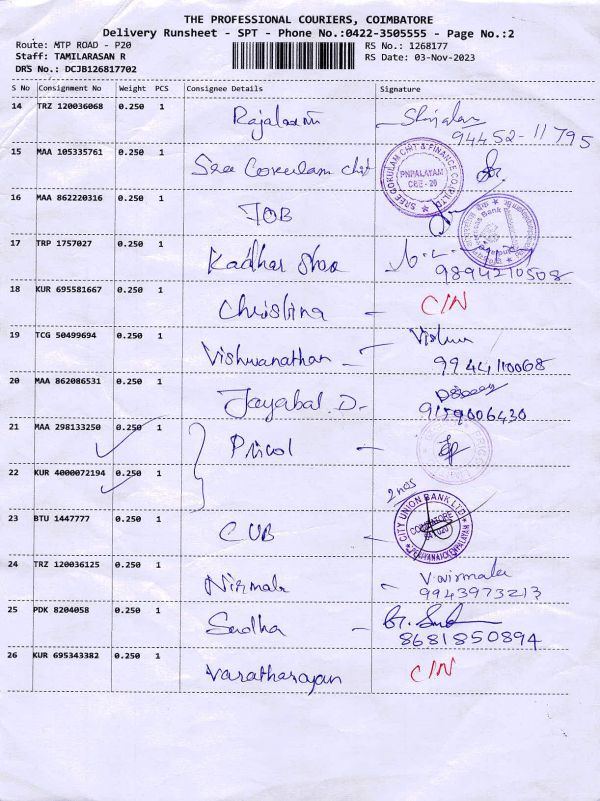 THE PROFESSIONAL COURIERS, COIMBATORE
Delivery Runsheet - SPT - Phone No.:0422-3505555 - Page No.:2
Route: MTP ROAD - P20 RS No.: 1268177
Staff: TAMILARASAN R RS Date: 03-Nov-2023
DRS No.: DCJB126817702
S No Consignment No Weight PCS Consignee Details Signature
14 TRZ 120036068 0.250 1 Rajalaxmi
94452-11795
15 MAA 105335761 0.250 1 Sree Gokulam chit
SREE GOKULAM CHIT & FINANCE CO.(P) LTD
PNPALAYAM
CBE - 20
16 MAA 862220316 0.250 1 IOB
17 TRP 1757027 0.250 1 Kadhar
9894210508
18 KUR 695581667 0.250 1 Christina - C/N
19 TCG 50499694 0.250 1 Vishwanathan -
9944110068
20 MAA 862086531 0.250 1 Jayabal.D-
9159006430
21 MAA 298133250 0.250 1 Pricol -
22 KUR 4000072194 0.250 1
2 nos
23 BTU 1447777 0.250 1 CUB
CITY UNION BANK LTD
COIMBATORE
24 TRZ 120036125 0.250 1 Nirmala - V.Nirmala
9943973213
25 PDK 8204058 0.250 1 Sudha -
8681850894
26 KUR 695343382 0.250 1 Varatharajan C/N